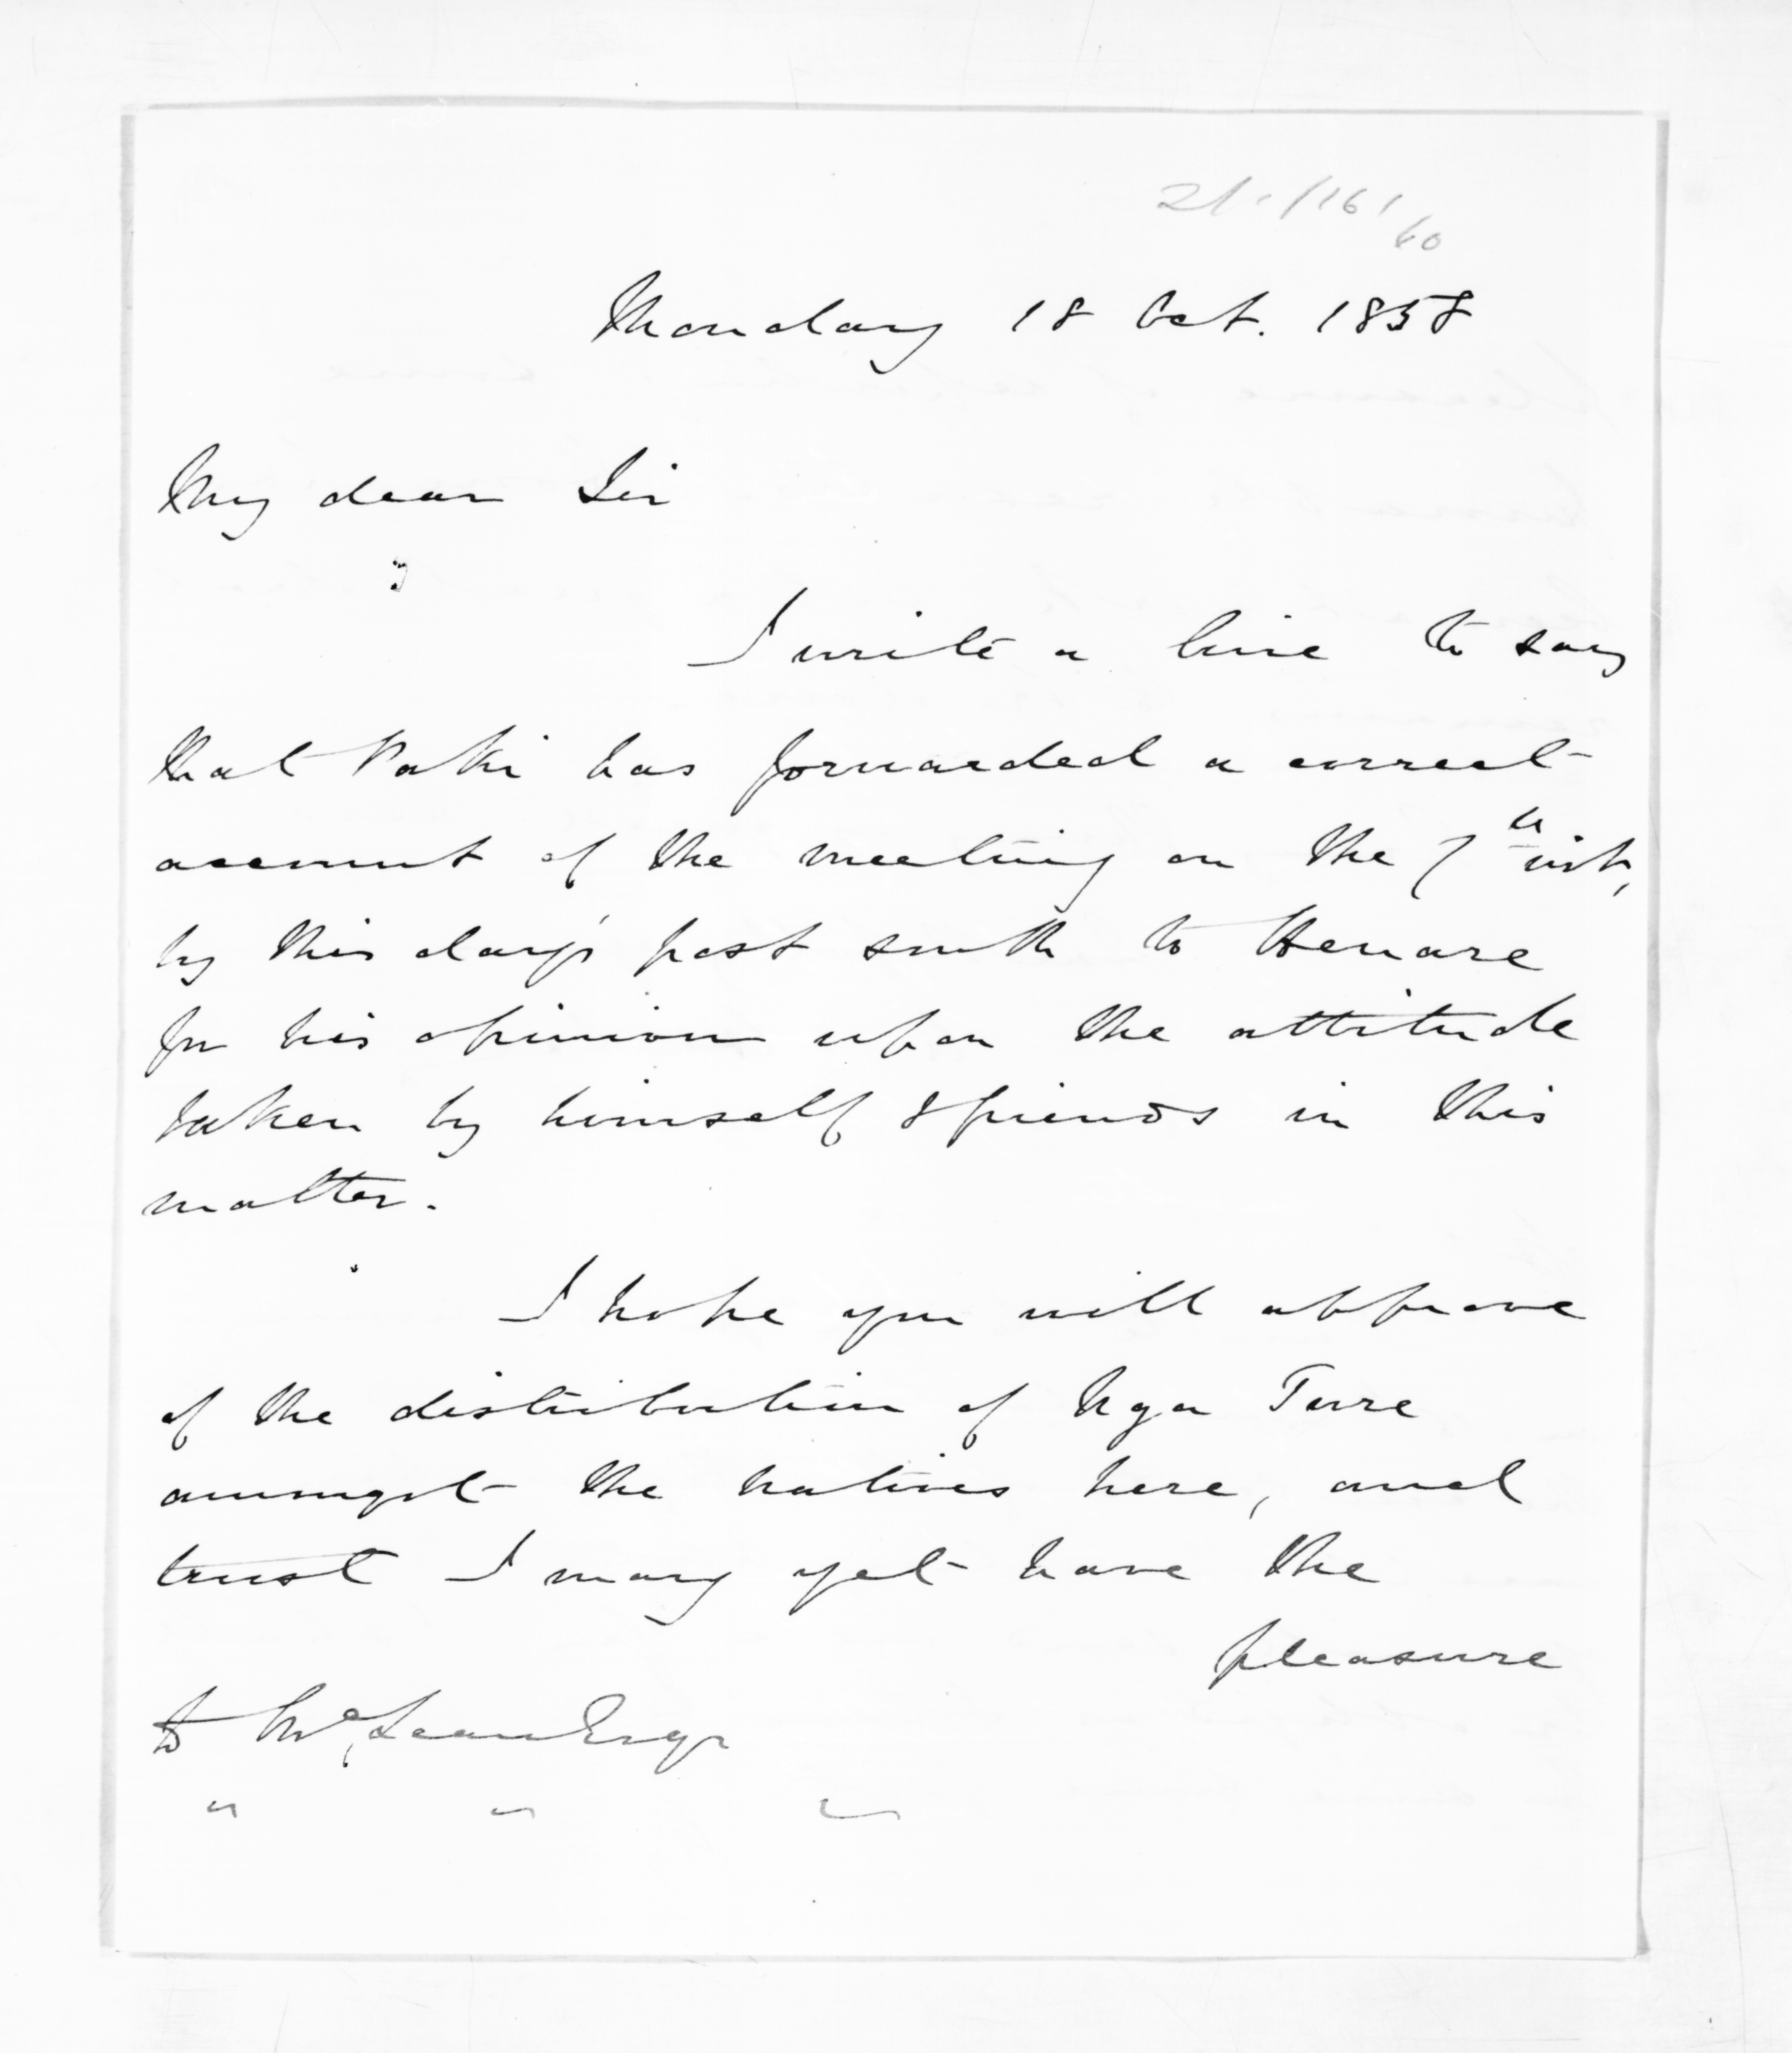 Monday 18 Oct. 1858
My dear Sir
I write a line to say
that Paki has forwarded a correct
account of the meeting on the 7th inst,
by this day's post south to Henare
for his opinion upon the attitude
taken by himself & friends in this
matter.
I hope you will approve
of the distribution of Nga Ture
amongst the natives here, and
trust I may yet have the
pleasure
to McLean Esqr
" " "